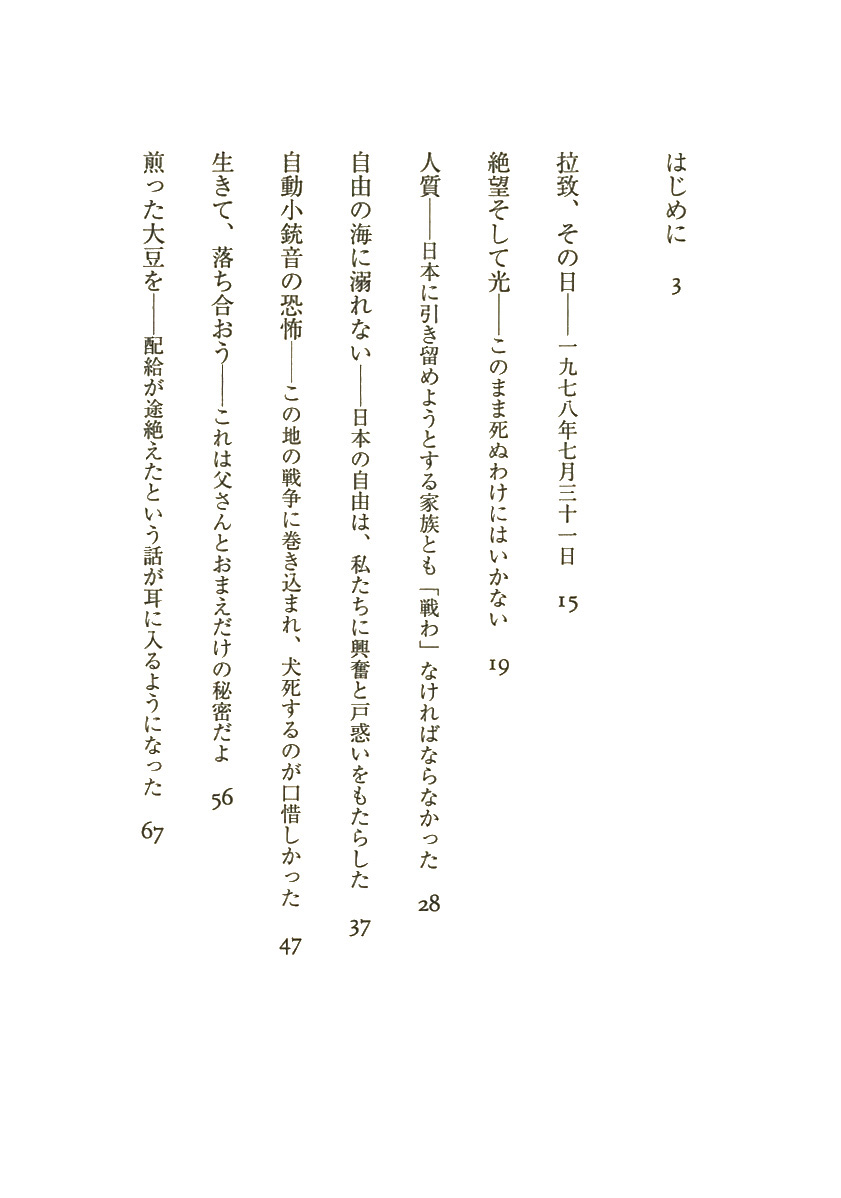 はじめに 3
拉致、その日――一九七八年七月三十一日 15
絶望そして光――このまま死ぬわけにはいかない 19
人質――日本に引き留めようとする家族とも「戦わ」なければならなかった 28
自由の海に溺れない――日本の自由は、私たちに興奮と戸惑いをもたらした 37
自動小銃音の恐怖――この地の戦争に巻き込まれ、犬死するのが口惜しかった 47
生きて、落ち合おう――これは父さんとおまえだけの秘密だよ 56
煎った大豆を――配給が途絶えたという話が耳に入るようになった 67